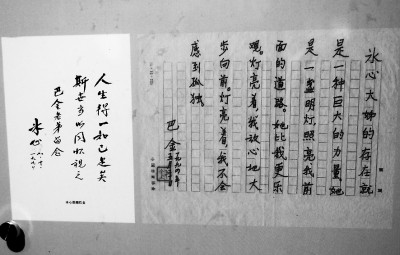 冰心大姊的存在就
是一种巨大的力量,她
是一盏明灯,照亮我前
面的道路。她比我更乐
观。灯亮着,我放心地大
步向前。灯亮着,我不会
感到孤独
巴金
一九九四年
人生得一知己足矣
斯世当以同怀视之
巴金老弟
冰心